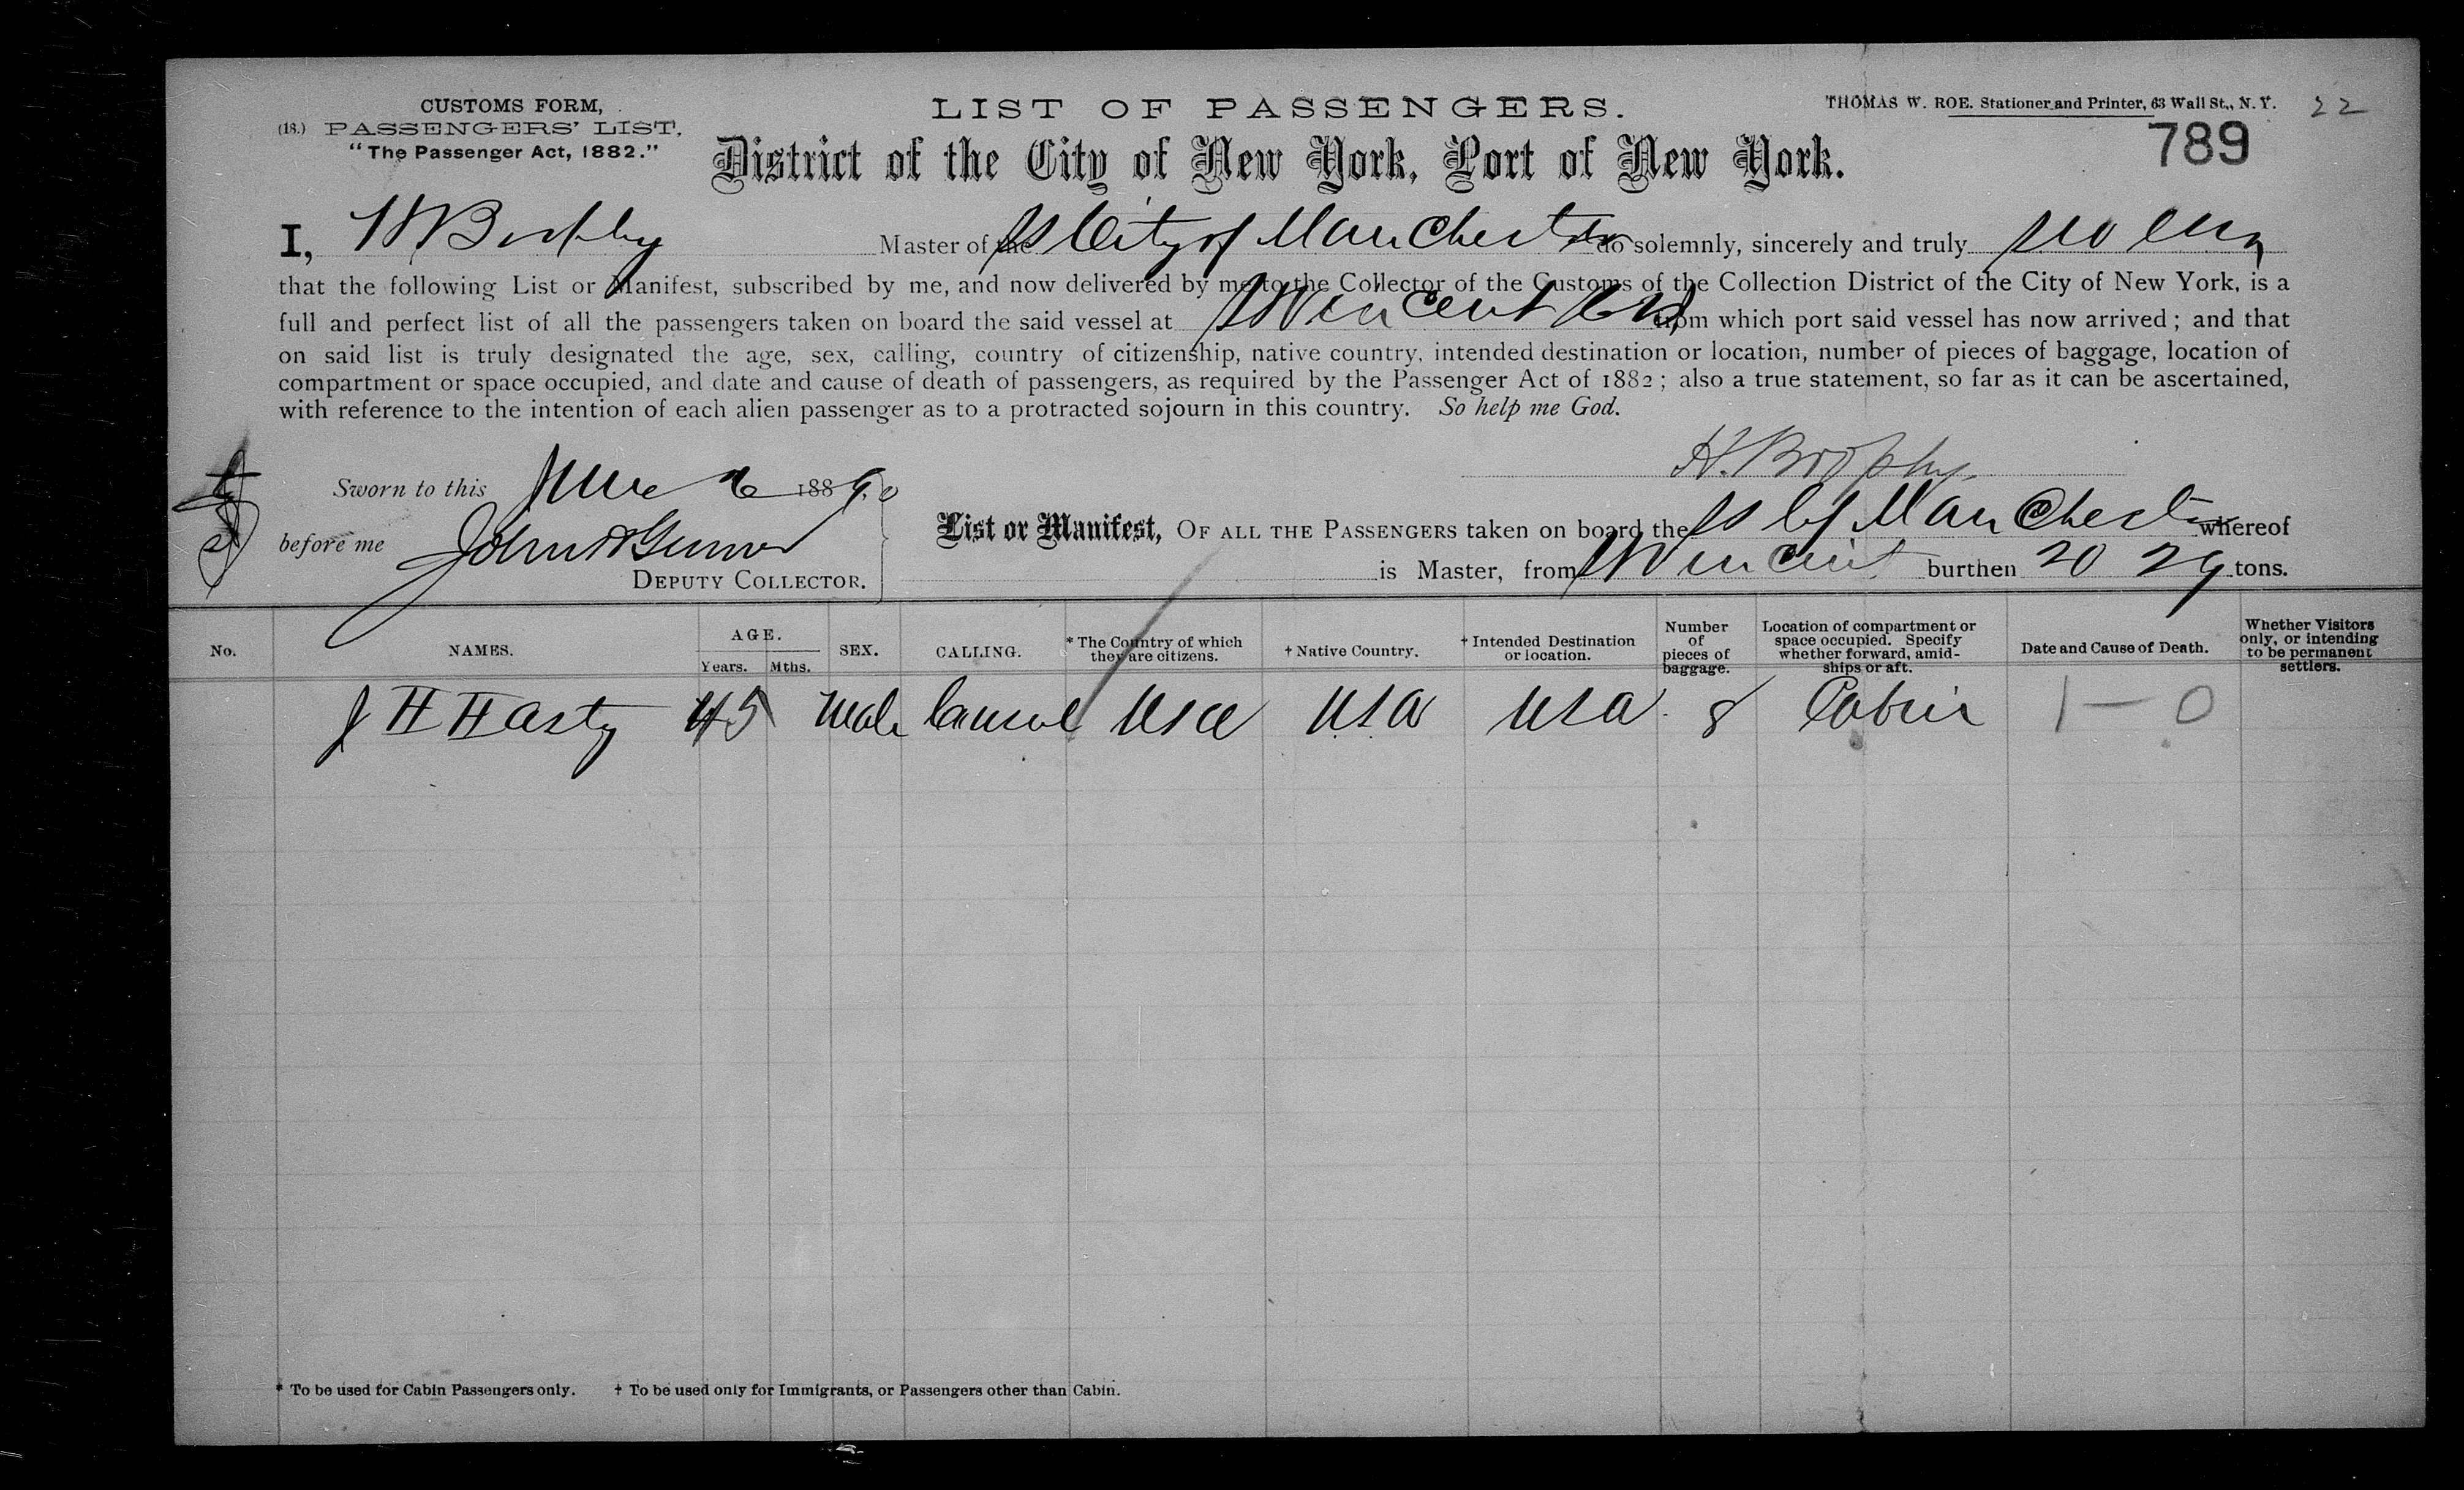 CUSTOMS FORM,
(18.) PASSENGERS' LIST,
"The Passenger Act, 1882."
LIST OF PASSENGERS.
THOMAS W. ROE. Stationer and Printer, 63 Wall St., N. Y. 22
789
District of the City of New York, Port of New York.
I, H Brophy Master of the SS City of Manchester do solemnly, sincerely and truly swear
that the following List or Manifest, subscribed by me, and now delivered by me to the Collector of the Customs of the Collection District of the City of New York, is a
full and perfect list of all the passengers taken on board the said vessel at St Vincent from which port said vessel has now arrived; and that
on said list is truly designated the age, sex, calling, country of citizenship, native country, intended destination or location, number of pieces of baggage, location of
compartment or space occupied, and date and cause of death of passengers, as required by the Passenger Act of 1882; also a true statement, so far as it can be ascertained,
with reference to the intention of each alien passenger as to a protracted sojourn in this country. So help me God.
H. Brophy
Sworn to this June 188
before me John
DEPUTY COLLECTOR.
List or Manifest, OF ALL THE PASSENGERS taken on board the SS C of Manchester whereof
is Master, from St Vincent burthen 2029 tons.
No. NAMES. AGE. Years. Mths. SEX. CALLING. * The Country of which they are citizens. † Native Country. † Intended Destination or location. Number of pieces of baggage. Location of compartment or space occupied. Specify whether forward, amidships or aft. Date and Cause of Death. Whether Visitors only, or intending to be permanent settlers.
J H Hasty 45 Male Consul USA USA USA 8 Cabin 1 — 0
* To be used for Cabin Passengers only. † To be used only for Immigrants, or Passengers other than Cabin.